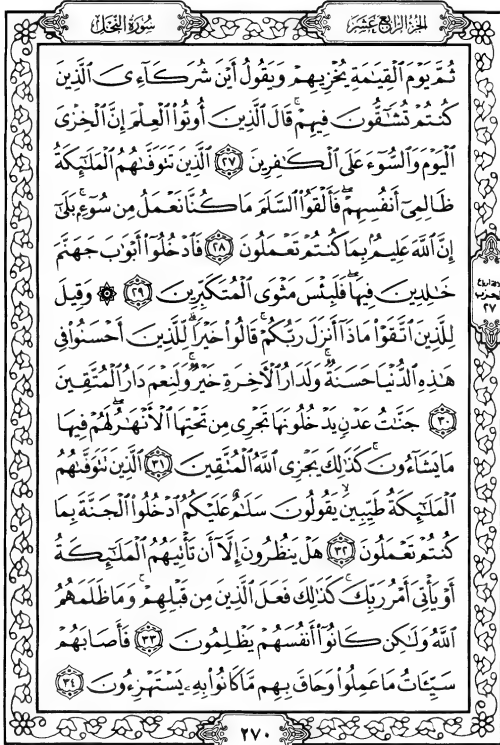 سُورَةُ النَّحْلِ
الجُزْءُ الرَّابِعُ عَشَرَ
ثُمَّ يَوْمَ الْقِيَٰمَةِ يُخْزِيهِمْ وَيَقُولُ أَيْنَ شُرَكَآءِىَ الَّذِينَ
كُنتُمْ تُشَٰٓقُّونَ فِيهِمْ ۚ قَالَ الَّذِينَ أُوتُوا۟ الْعِلْمَ إِنَّ الْخِزْىَ
الْيَوْمَ وَالسُّوٓءَ عَلَى الْكَٰفِرِينَ ﴿٢٧﴾ الَّذِينَ تَتَوَفَّىٰهُمُ الْمَلَٰٓئِكَةُ
ظَالِمِىٓ أَنفُسِهِمْ ۖ فَأَلْقَوُا۟ السَّلَمَ مَا كُنَّا نَعْمَلُ مِن سُوٓءٍۭ ۚ بَلَىٰٓ
إِنَّ اللَّهَ عَلِيمٌۢ بِمَا كُنتُمْ تَعْمَلُونَ ﴿٢٨﴾ فَادْخُلُوٓا۟ أَبْوَٰبَ جَهَنَّمَ
خَٰلِدِينَ فِيهَا ۖ فَلَبِئْسَ مَثْوَى الْمُتَكَبِّرِينَ ﴿٢٩﴾ ۞ وَقِيلَ
لِلَّذِينَ اتَّقَوْا۟ مَاذَآ أَنزَلَ رَبُّكُمْ ۚ قَالُوا۟ خَيْرًا ۗ لِّلَّذِينَ أَحْسَنُوا۟ فِى
هَٰذِهِ الدُّنْيَا حَسَنَةٌ ۚ وَلَدَارُ الْءَاخِرَةِ خَيْرٌ ۚ وَلَنِعْمَ دَارُ الْمُتَّقِينَ
﴿٣٠﴾ جَنَّٰتُ عَدْنٍ يَدْخُلُونَهَا تَجْرِى مِن تَحْتِهَا الْأَنْهَٰرُ ۖ لَهُمْ فِيهَا
مَا يَشَآءُونَ ۚ كَذَٰلِكَ يَجْزِى اللَّهُ الْمُتَّقِينَ ﴿٣١﴾ الَّذِينَ تَتَوَفَّىٰهُمُ
الْمَلَٰٓئِكَةُ طَيِّبِينَ ۙ يَقُولُونَ سَلَٰمٌ عَلَيْكُمُ ادْخُلُوا۟ الْجَنَّةَ بِمَا
كُنتُمْ تَعْمَلُونَ ﴿٣٢﴾ هَلْ يَنظُرُونَ إِلَّآ أَن تَأْتِيَهُمُ الْمَلَٰٓئِكَةُ
أَوْ يَأْتِىَ أَمْرُ رَبِّكَ ۚ كَذَٰلِكَ فَعَلَ الَّذِينَ مِن قَبْلِهِمْ ۚ وَمَا ظَلَمَهُمُ
اللَّهُ وَلَٰكِن كَانُوٓا۟ أَنفُسَهُمْ يَظْلِمُونَ ﴿٣٣﴾ فَأَصَابَهُمْ
سَيِّـَٔاتُ مَا عَمِلُوا۟ وَحَاقَ بِهِم مَّا كَانُوا۟ بِهِۦ يَسْتَهْزِءُونَ ﴿٣٤﴾
الحزب
٢٧
٢٧٠